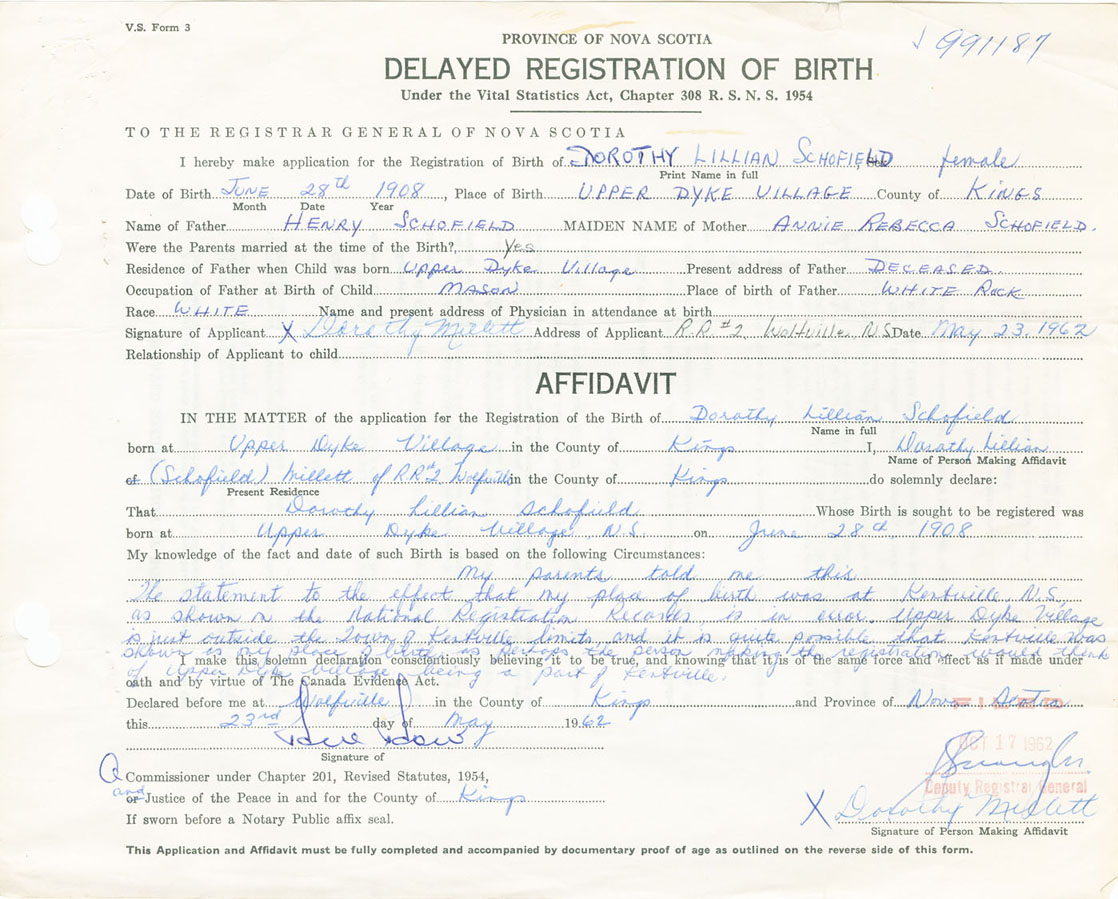 V.S. Form 3
991187
PROVINCE OF NOVA SCOTIA
DELAYED REGISTRATION OF BIRTH
Under the Vital Statistics Act, Chapter 308 R. S. N. S. 1954
TO THE REGISTRAR GENERAL OF NOVA SCOTIA
I hereby make application for the Registration of Birth of DOROTHY LILLIAN SCHOFIELD female
Print Name in full
Date of Birth JUNE 28th 1908, Place of Birth UPPER DYKE VILLAGE County of KINGS
Month Date Year
Name of Father HENRY SCHOFIELD MAIDEN NAME of Mother ANNIE REBECCA SCHOFIELD.
Were the Parents married at the time of the Birth? Yes
Residence of Father when Child was born Upper Dyke Village Present address of Father DECEASED
Occupation of Father at Birth of Child MASON Place of birth of Father WHITE ROCK
Race WHITE Name and present address of Physician in attendance at birth
Signature of Applicant X Dorothy Millett Address of Applicant R.R. #2, Wolfville, N.S Date May 23, 1962
Relationship of Applicant to child
AFFIDAVIT
IN THE MATTER of the application for the Registration of the Birth of Dorothy Lillian Schofield
Name in full
born at Upper Dyke Village in the County of Kings I, Dorothy Lillian
Name of Person Making Affidavit
of (Schofield) Millett of RR#2 Wolfville in the County of Kings do solemnly declare:
Present Residence
That Dorothy Lillian Schofield Whose Birth is sought to be registered was
born at Upper Dyke Village, N.S. on June 28th, 1908
My knowledge of the fact and date of such Birth is based on the following Circumstances:
My parents told me this
The statement to the effect that my place of birth was at Kentville N.S.
as shown on the National Registration Records is in error. Upper Dyke Village
is just outside the Town of Kentville limits and it is quite possible that Kentville was
shown as my place of birth as perhaps the person making the registration would think
I make this solemn declaration conscientiously believing it to be true, and knowing that it is of the same force and effect as if made under
of Upper Dyke Village being a part of Kentville.
oath and by virtue of The Canada Evidence Act.
Declared before me at Wolfville in the County of Kings and Province of Nova Scotia
this 23rd day of May 1962
OCT 17 1962
Signature of
Deputy Registrar General
A Commissioner under Chapter 201, Revised Statutes, 1954,
and
or Justice of the Peace in and for the County of Kings
X Dorothy Millett
If sworn before a Notary Public affix seal.
Signature of Person Making Affidavit
This Application and Affidavit must be fully completed and accompanied by documentary proof of age as outlined on the reverse side of this form.